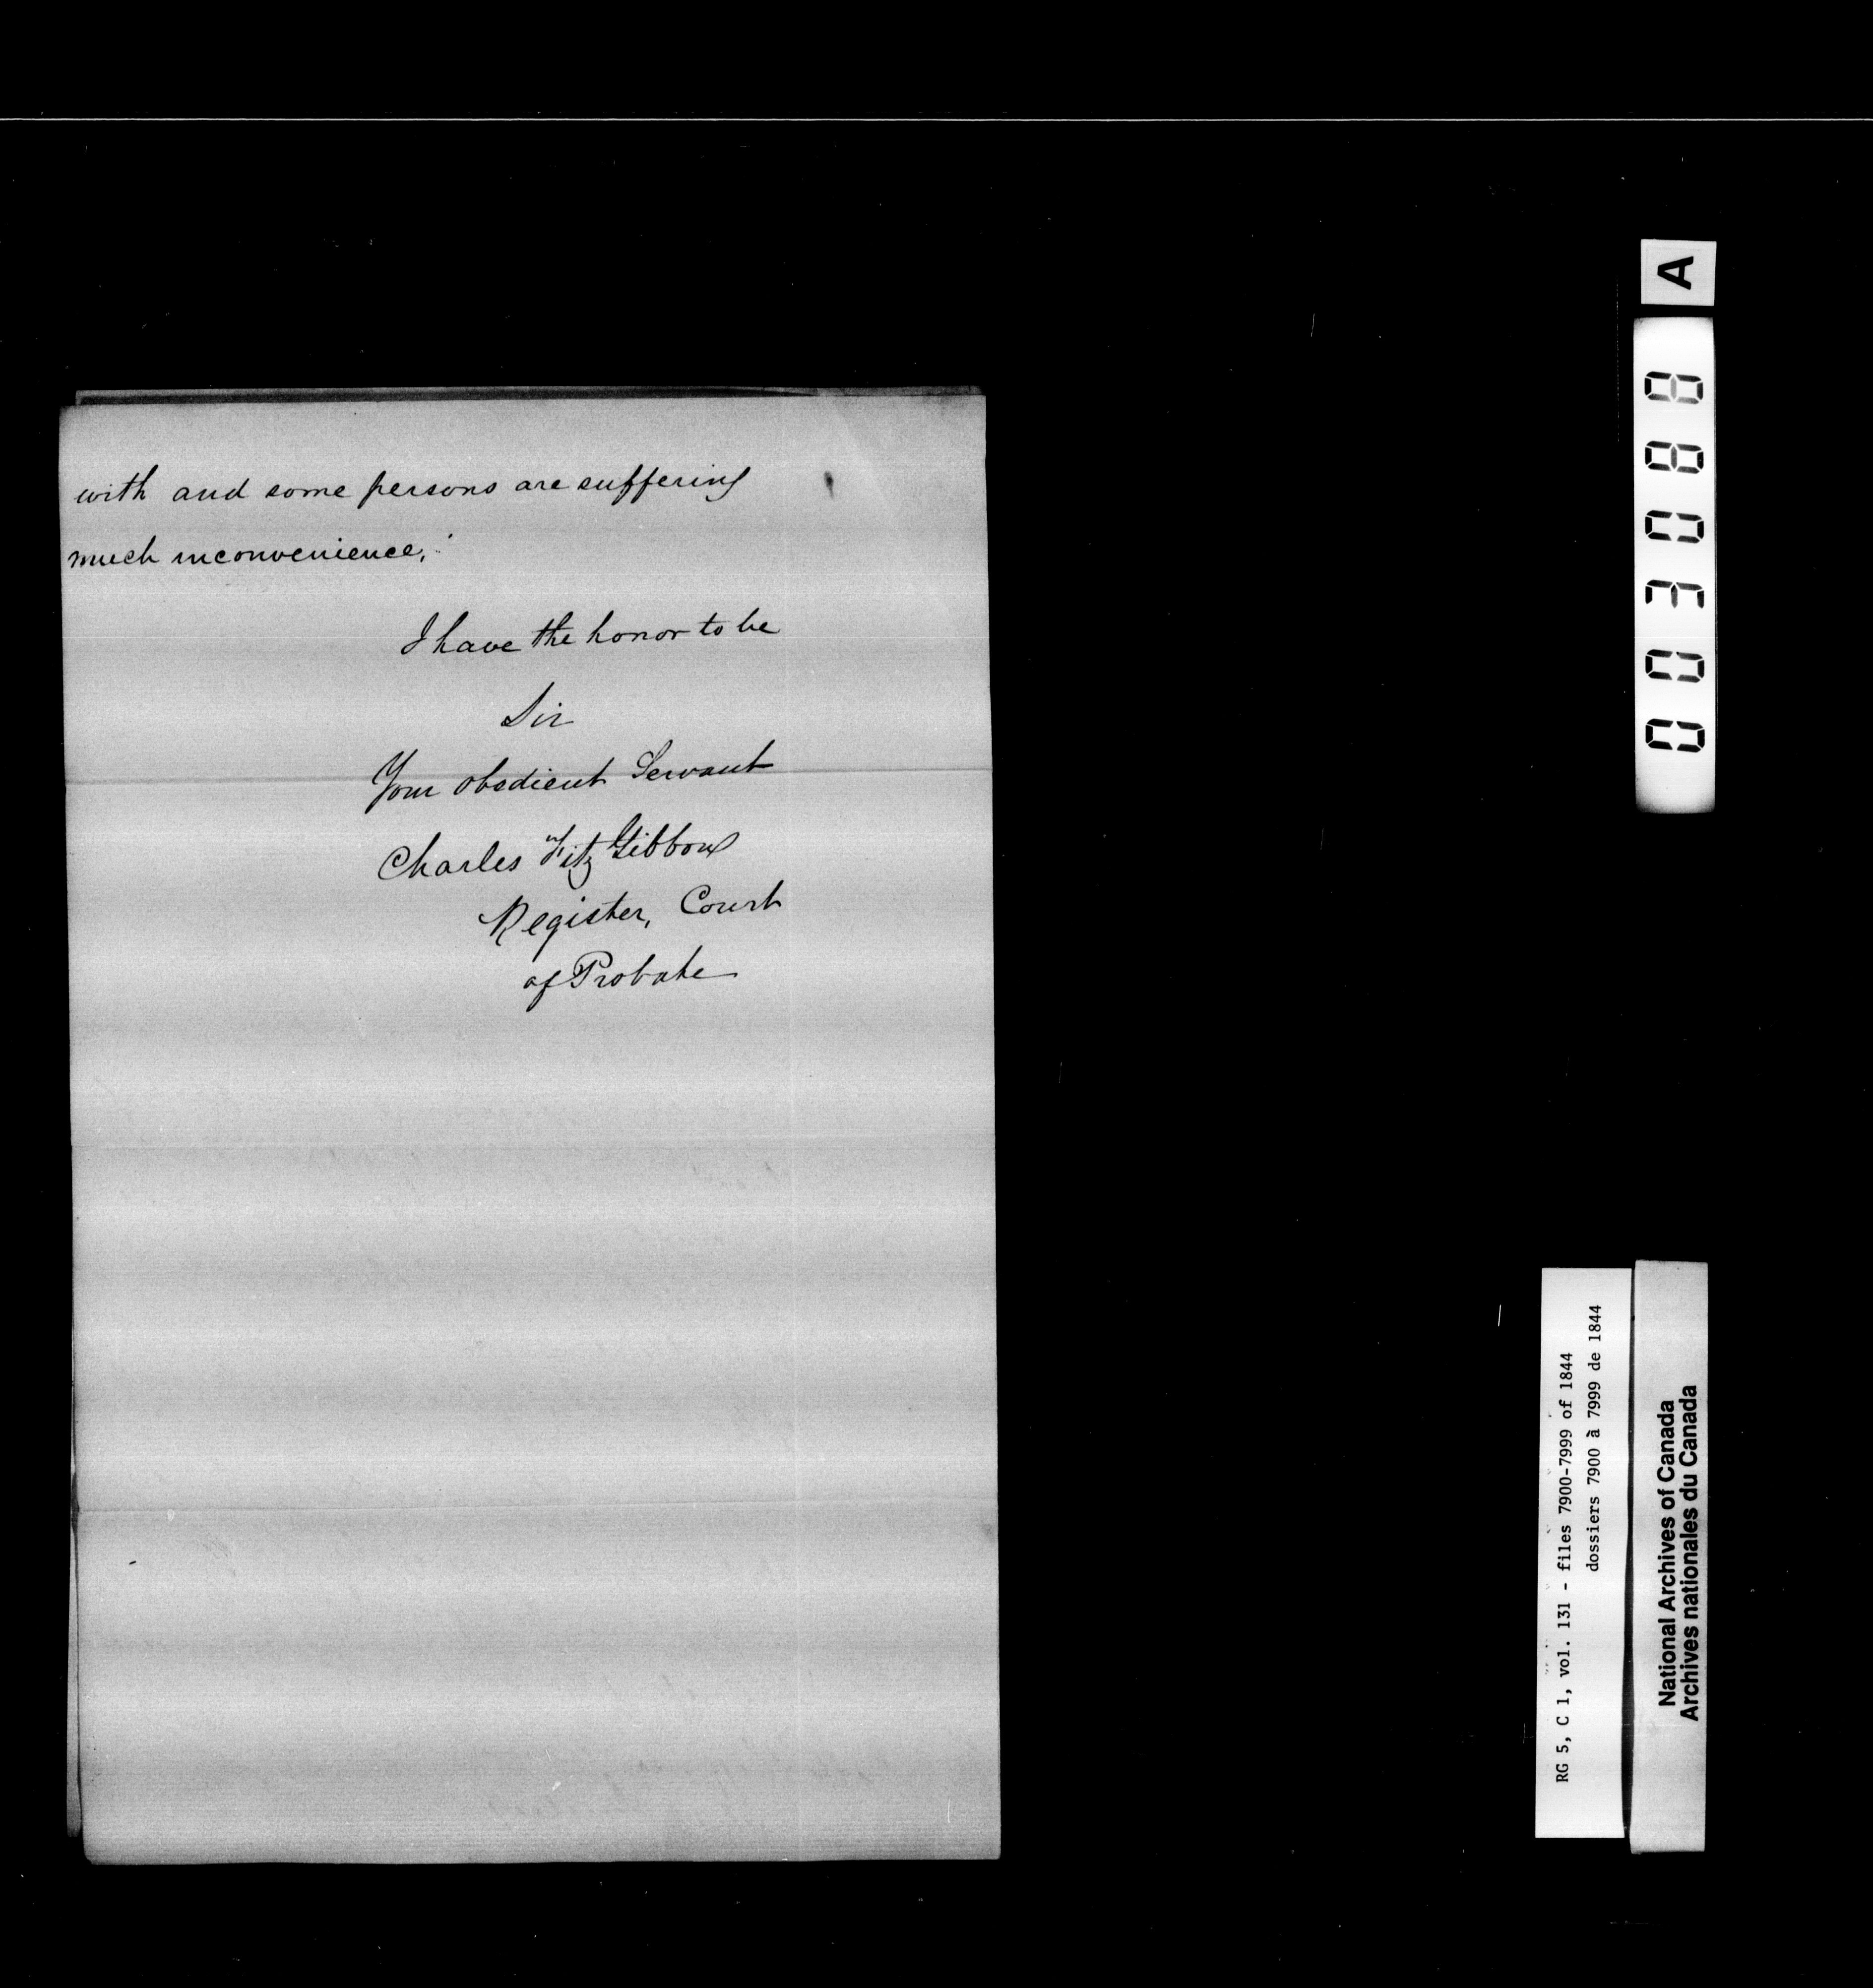 with and some persons are suffering
much inconvenience.
I have the honor to be
Sir
Your obedient Servant
Charles FitzGibbon
Register, Court
of Probate
003088 A
RG 5, C 1, vol. 131 - files 7900-7999 of 1844
dossiers 7900 à 7999 de 1844
National Archives of Canada
Archives nationales du Canada